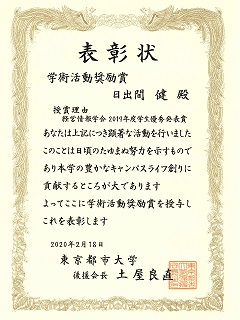 表彰状
学術活動奨励賞
日出間 健 殿
授賞理由
経営情報学会 2019年度学生優秀発表賞
あなたは上記につき顕著な活動を行いました
このことは日頃のたゆまぬ努力を示すもので
あり本学の豊かなキャンパスライフ創りに
貢献するところが大であります
よってここに学術活動奨励賞を授与し
これを表彰します
2020年2月18日
東京都市大学
後援会長 土屋良直